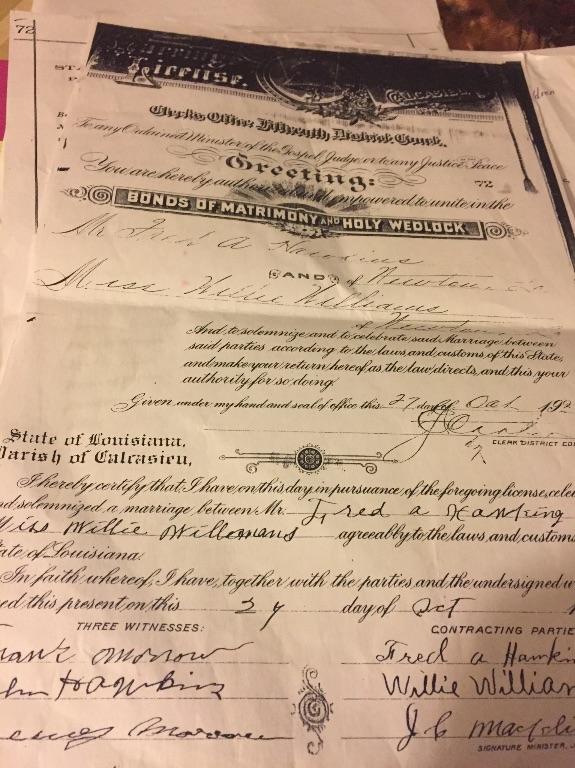 72
Marriage
License.
Calcasieu
Clerk's Office Fifteenth District Court.
To any Ordained Minister of the Gospel, Judge or to any Justice Peace
Greeting:
72
You are hereby authorized and empowered to unite in the
BONDS OF MATRIMONY AND HOLY WEDLOCK
Mr Fred A Hawkins
of Newton
AND
Miss Willie Williams
of Newton
And to solemnize and to celebrate said Marriage between
said parties according to the laws and customs of this State,
and make your return hereof, as the law directs, and this your
authority for so doing
Given under my hand and seal of office this 27 day of Oct 192
CLERK DISTRICT CO
State of Louisiana,
Parish of Calcasieu,
I hereby certify that I have on this day in pursuance of the foregoing license, cele
nd solemnized a marriage between Mr. Fred a Hawking
Miss Willie Willemans agreeably to the laws, and customs
ate of Louisiana.
In faith whereof, I have, together with the parties, and the undersigned w
ed this present on this 27 day of Oct
THREE WITNESSES:
CONTRACTING PARTIE
Frank Morrow
Fred a Hawkin
hn Hawkins
Willie William
Morrow
J C
SIGNATURE MINISTER, J